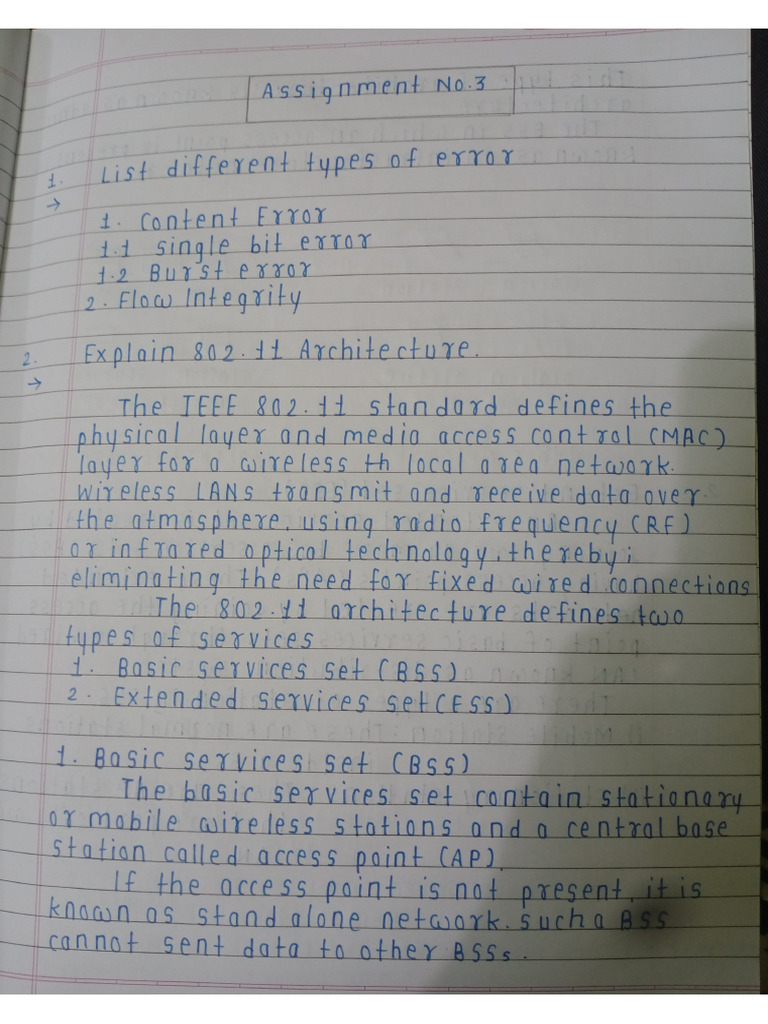 Assignment No.3
1. List different types of error
→
1. Content Error
1.1 single bit error
1.2 Burst error
2. Flow Integrity
2. Explain 802.11 Architecture.
→
The IEEE 802.11 standard defines the
physical layer and media access control (MAC)
layer for a wireless th local area network.
Wireless LANs transmit and receive data over
the atmosphere, using radio frequency (RF)
or infrared optical technology, thereby;
eliminating the need for fixed wired connections
The 802.11 architecture defines two
types of services
1. Basic services set (BSS)
2. Extended services set (ESS)
1. Basic services set (BSS)
The basic services set contain stationary
or mobile wireless stations and a central base
station called access point (AP).
If the access point is not present, it is
known as stand alone network. such a BSS
cannot sent data to other BSSs.